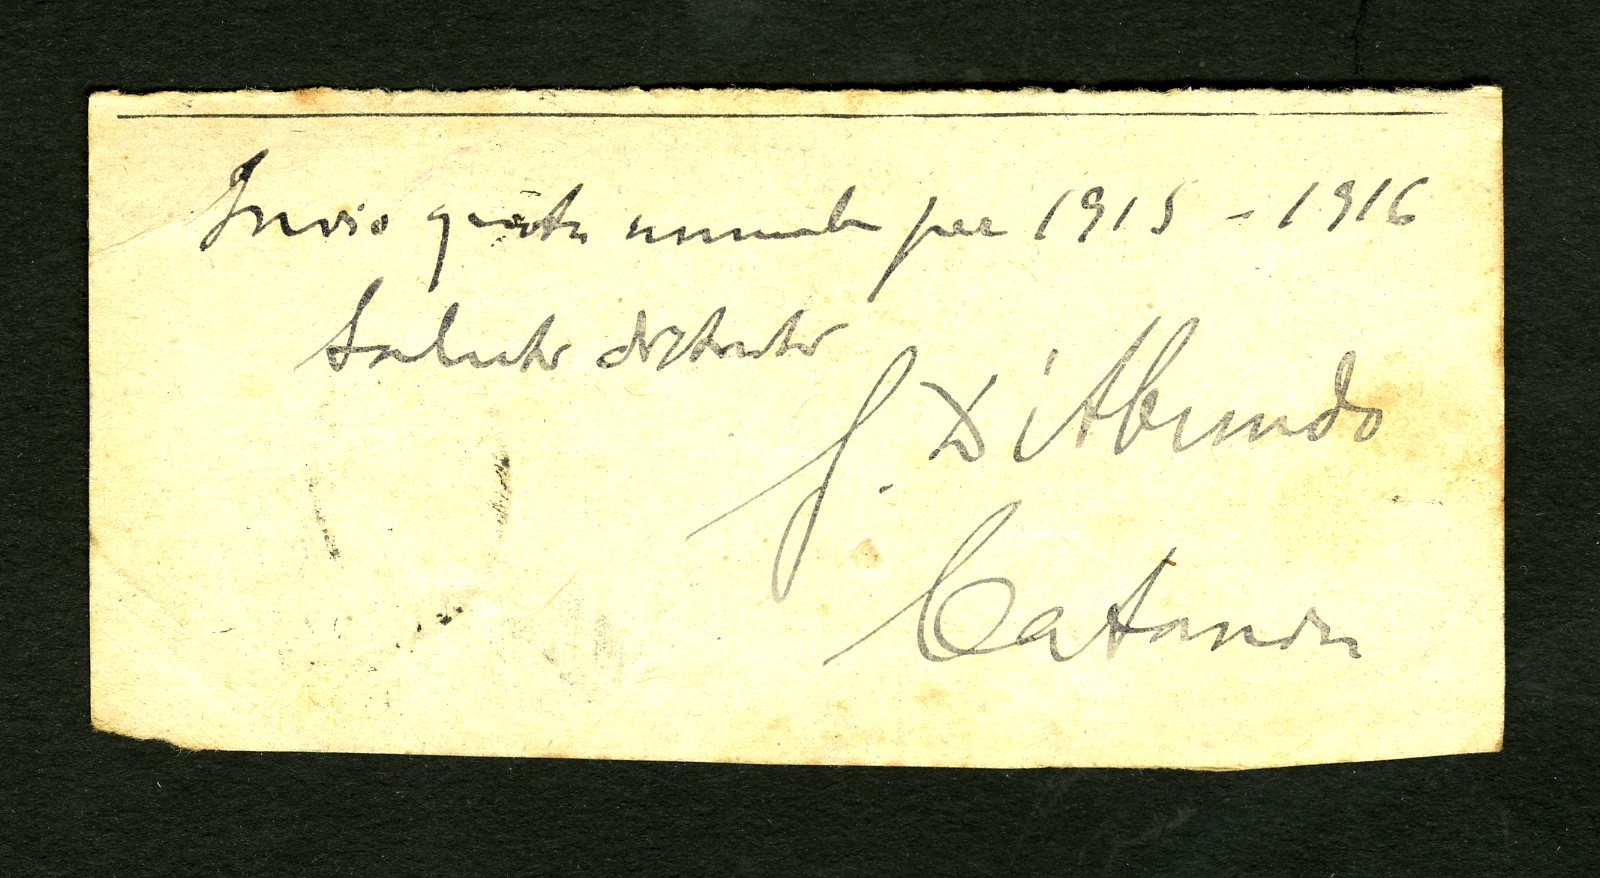 Invio quota annuale per 1915 - 1916
Saluti distinti
G. D'Abundo
Catania